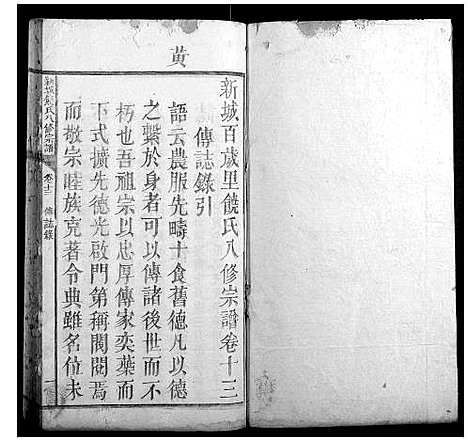 黄
新城百歲里饒氏八修宗譜卷十三
傳誌錄引
語云農服先疇士食舊德凡以德
之繫於身者可以傳諸後世而不
朽也吾祖宗以忠厚傳家奕葉而
下式擴先德光啟門第稱閥閱焉
而敬宗睦族克著令典雖名位未
新城饒氏八修宗譜 卷十三 傳誌錄 一